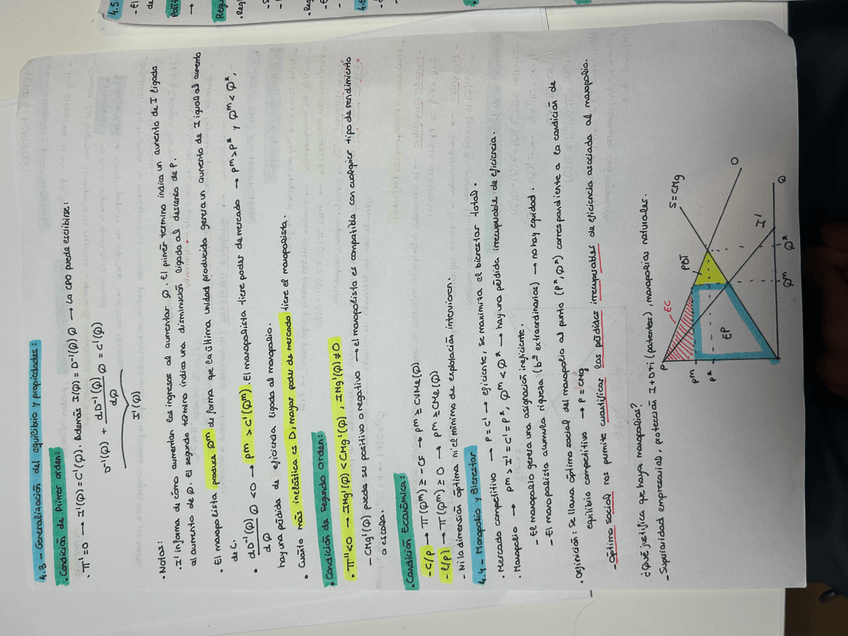 4.3 – Generalización del equilibrio y propiedades:
· Condición de Primer orden:
· π' = 0 → I'(Q) = C'(Q). Además I(Q) = D⁻¹(Q) Q → La CPO puede escribirse:
D⁻¹(Q) + dD⁻¹(Q)/dQ Q = C'(Q)
I'(Q)
· Notas:
- I' informa de cómo aumentan los ingresos al aumentar Q. El primer término indica un aumento de I ligado
al aumento de Q. El segundo término indica una disminución ligada al descenso de P.
· El monopolista produce Qᵐ de forma que la última unidad producida genera un aumento de I igual al aumento
de C.
· dD⁻¹(Q)/dQ Q < 0 → Pᵐ > C'(Qᵐ). El monopolista tiene poder de mercado → Pᵐ > P* y Qᵐ < Q*,
hay una pérdida de eficiencia ligada al monopolio.
· Cuanto más inelástica es D, mayor poder de mercado tiene el monopolista.
· Condición de Segundo Orden:
· π'' < 0 → IMg'(Q) < CMg'(Q), IMg'(Q) ≠ 0
- CMg'(Q) puede ser positivo o negativo → el monopolista es compatible con cualquier tipo de rendimiento
a escala.
· Condición Económica:
- C/P → π(Qᵐ) ≥ -CF → Pᵐ ≥ CVMe(Q)
- L/P → π(Qᵐ) ≥ 0 → Pᵐ ≥ CMe(Q)
- Ni la dimensión óptima ni el mínimo de explotación intervienen.
4.4 – Monopolio y Bienestar
· Mercado competitivo → P = C' → eficiente, se maximiza el bienestar total.
· Monopolio → Pᵐ > I' = C' = P*, Qᵐ < Q* → hay una pérdida irrecuperable de eficiencia.
- El monopolio genera una asignación ineficiente.
- El monopolista acumula riqueza (bº extraordinarios) → no hay equidad.
· Definición: se llama óptimo social del monopolio al punto (P*, Q*) correspondiente a la condición de
equilibrio competitivo → P = CMg
- Óptimo social nos permite cuantificar las pérdidas irrecuperables de eficiencia asociada al monopolio.
¿Qué justifica que haya monopolios?
- Superioridad empresarial, protección I+D+i (patentes), monopolios naturales.
P
EC
PDI
S = CMg
Pᵐ
P*
EP
D
I'
Qᵐ
Q*
Q
4.5